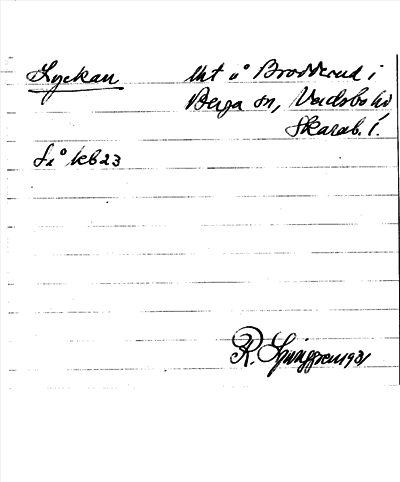 Lyckan
Uht u° Brodderud i
Berga sn, Vadsbo hd
Skarab. l.
Se° kb 23
R. Ljunggren 1931